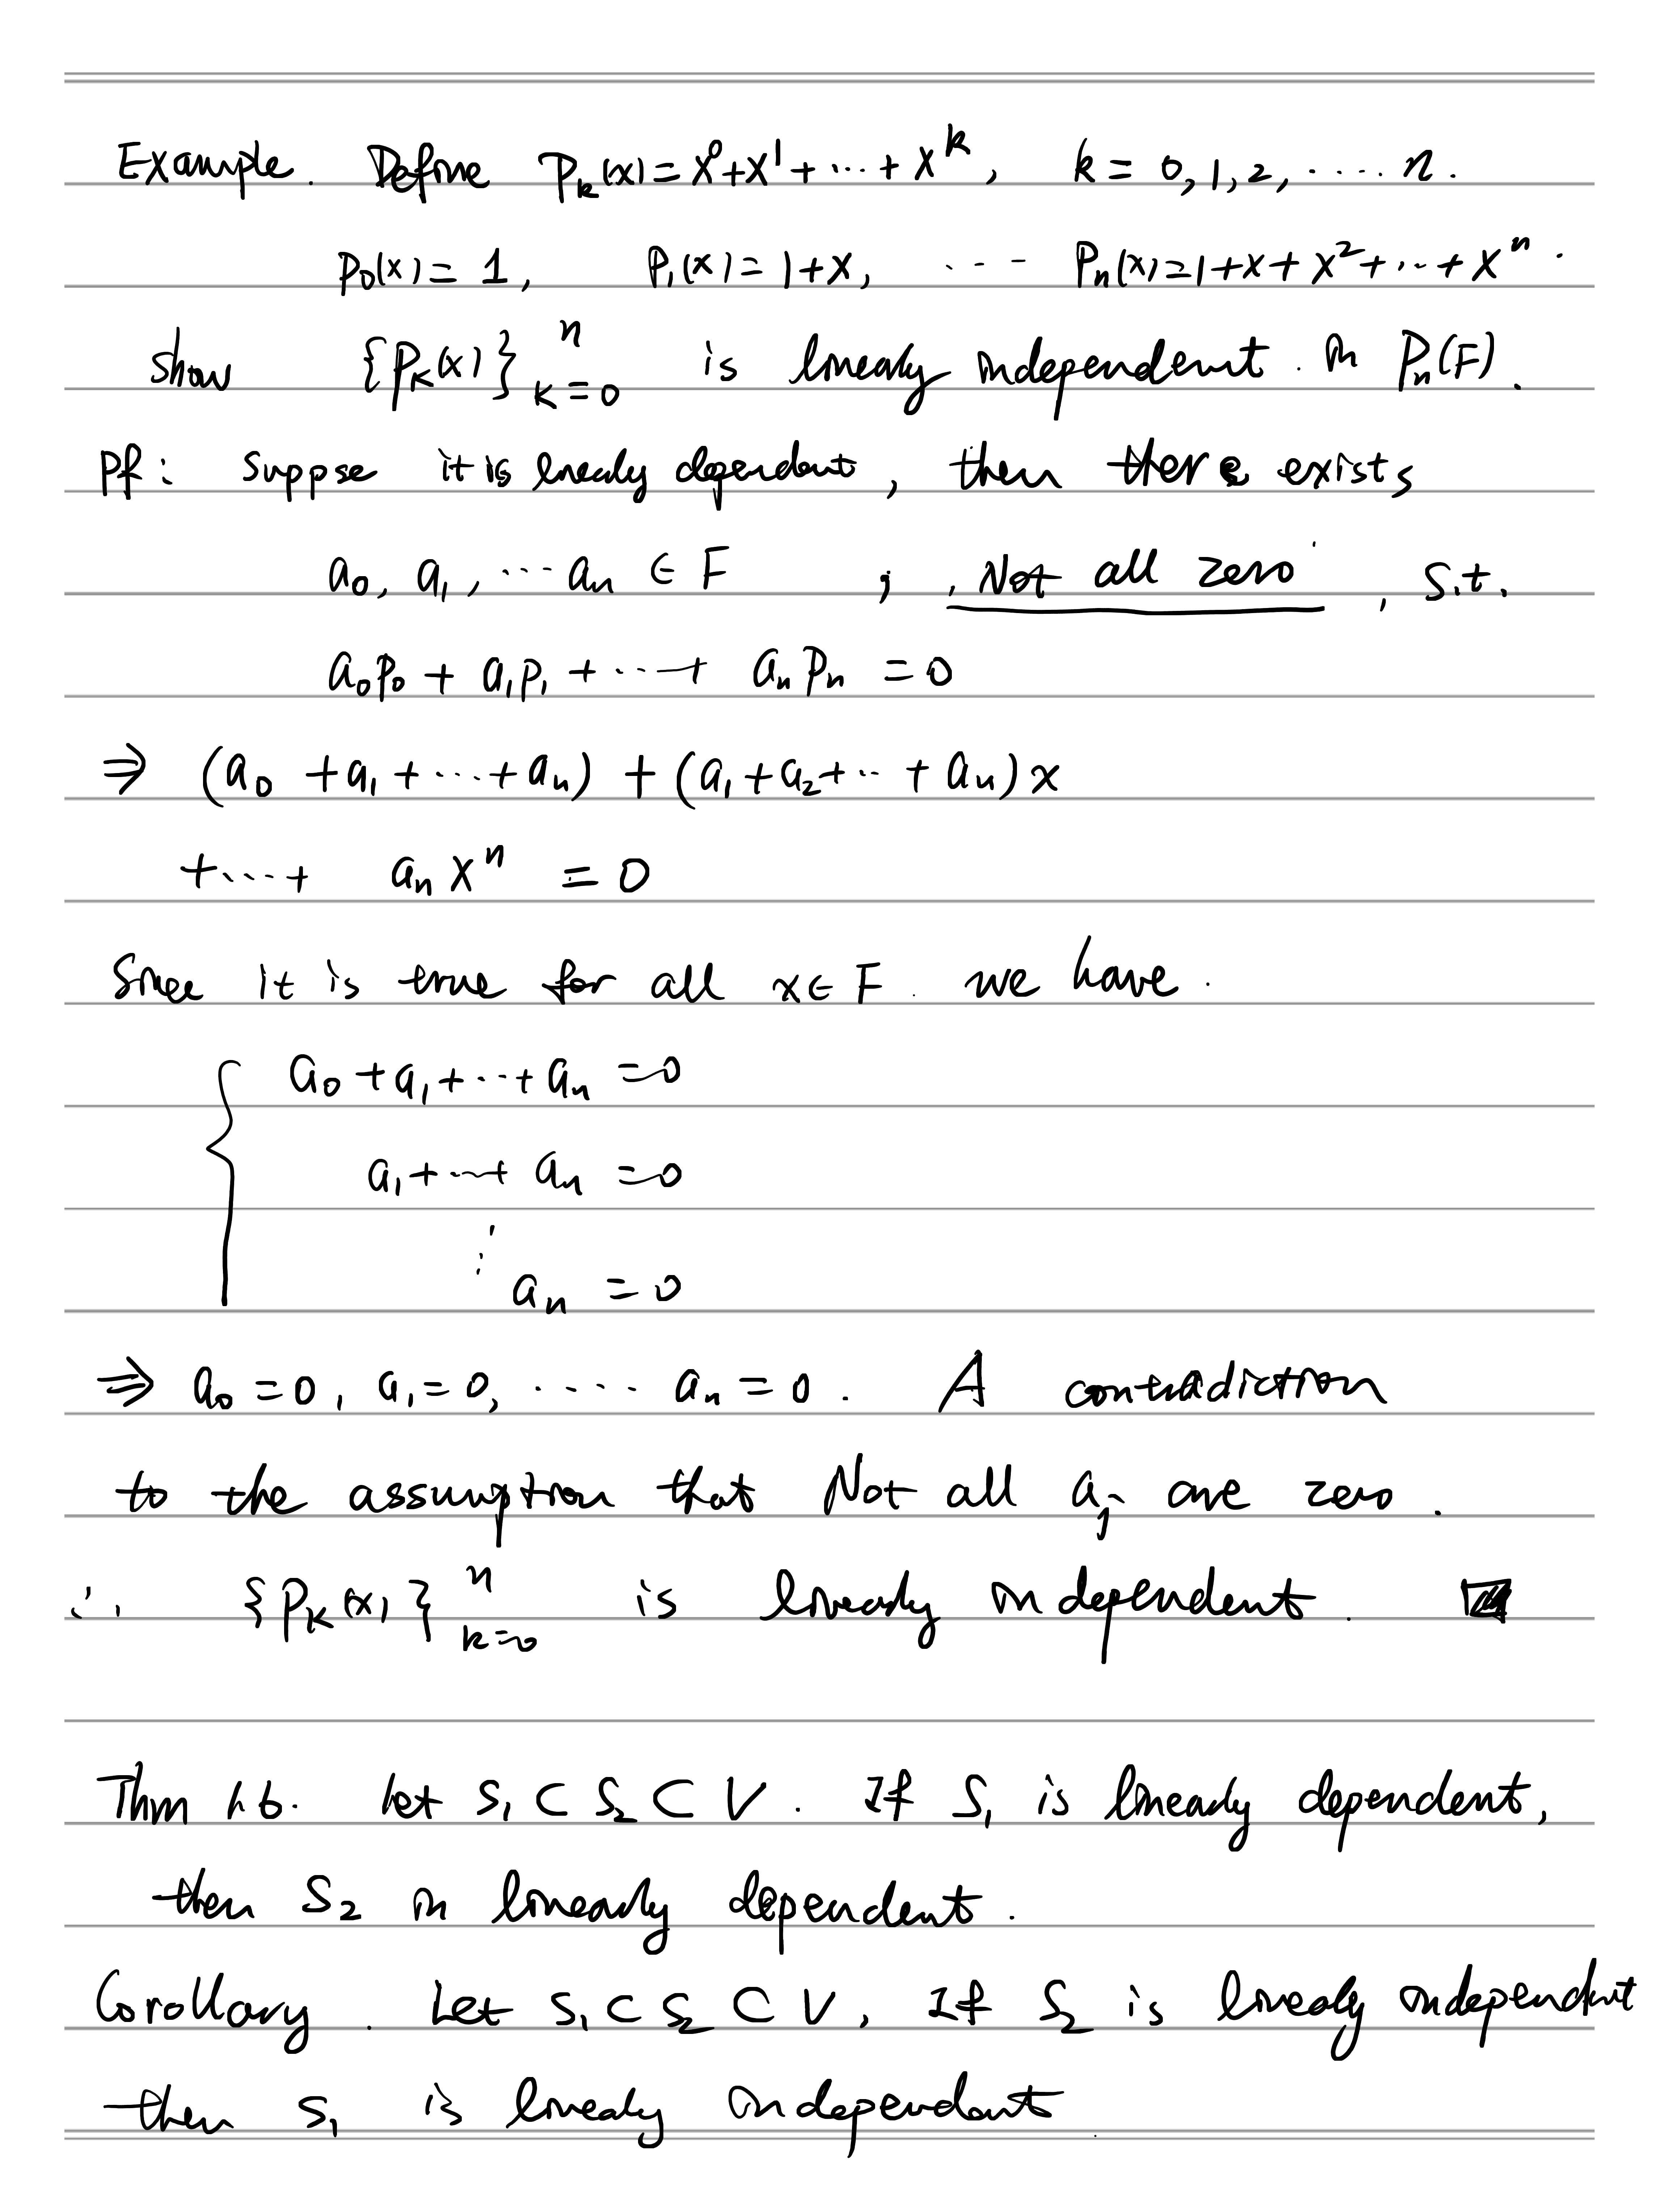 Example. Define P_k(x) = x^0 + x^1 + ... + x^k, k = 0, 1, 2, .... n.
P_0(x) = 1, P_1(x) = 1+x, ... P_n(x) = 1+x+x^2+...+x^n.
show {P_k(x)}_{k=0}^n is linearly independent. in P_n(F).
Pf: Suppse it is linearly dependent, then there exists
a_0, a_1, ... a_n ∈ F ; , Not all zero, s.t.
a_0 p_0 + a_1 p_1 + ... + a_n p_n = 0
⇒ (a_0 + a_1 + ... + a_n) + (a_1 + a_2 + ... + a_n) x
+ ... + a_n x^n = 0
Since it is true for all x ∈ F. we have.
{ a_0 + a_1 + ... + a_n = 0
a_1 + ... + a_n = 0
⋮
a_n = 0
⇒ a_0 = 0, a_1 = 0, .... a_n = 0. A contradiction
to the assumption that Not all a_j are zero.
∴ {P_k(x)}_{k=0}^n is linearly independent.
Thm 1.6. Let S_1 ⊂ S_2 ⊂ V. If S_1 is linearly dependent,
then S_2 in linearly dependent.
Corollary. Let S_1 ⊂ S_2 ⊂ V, If S_2 is linearly independent
then S_1 is linearly independent.